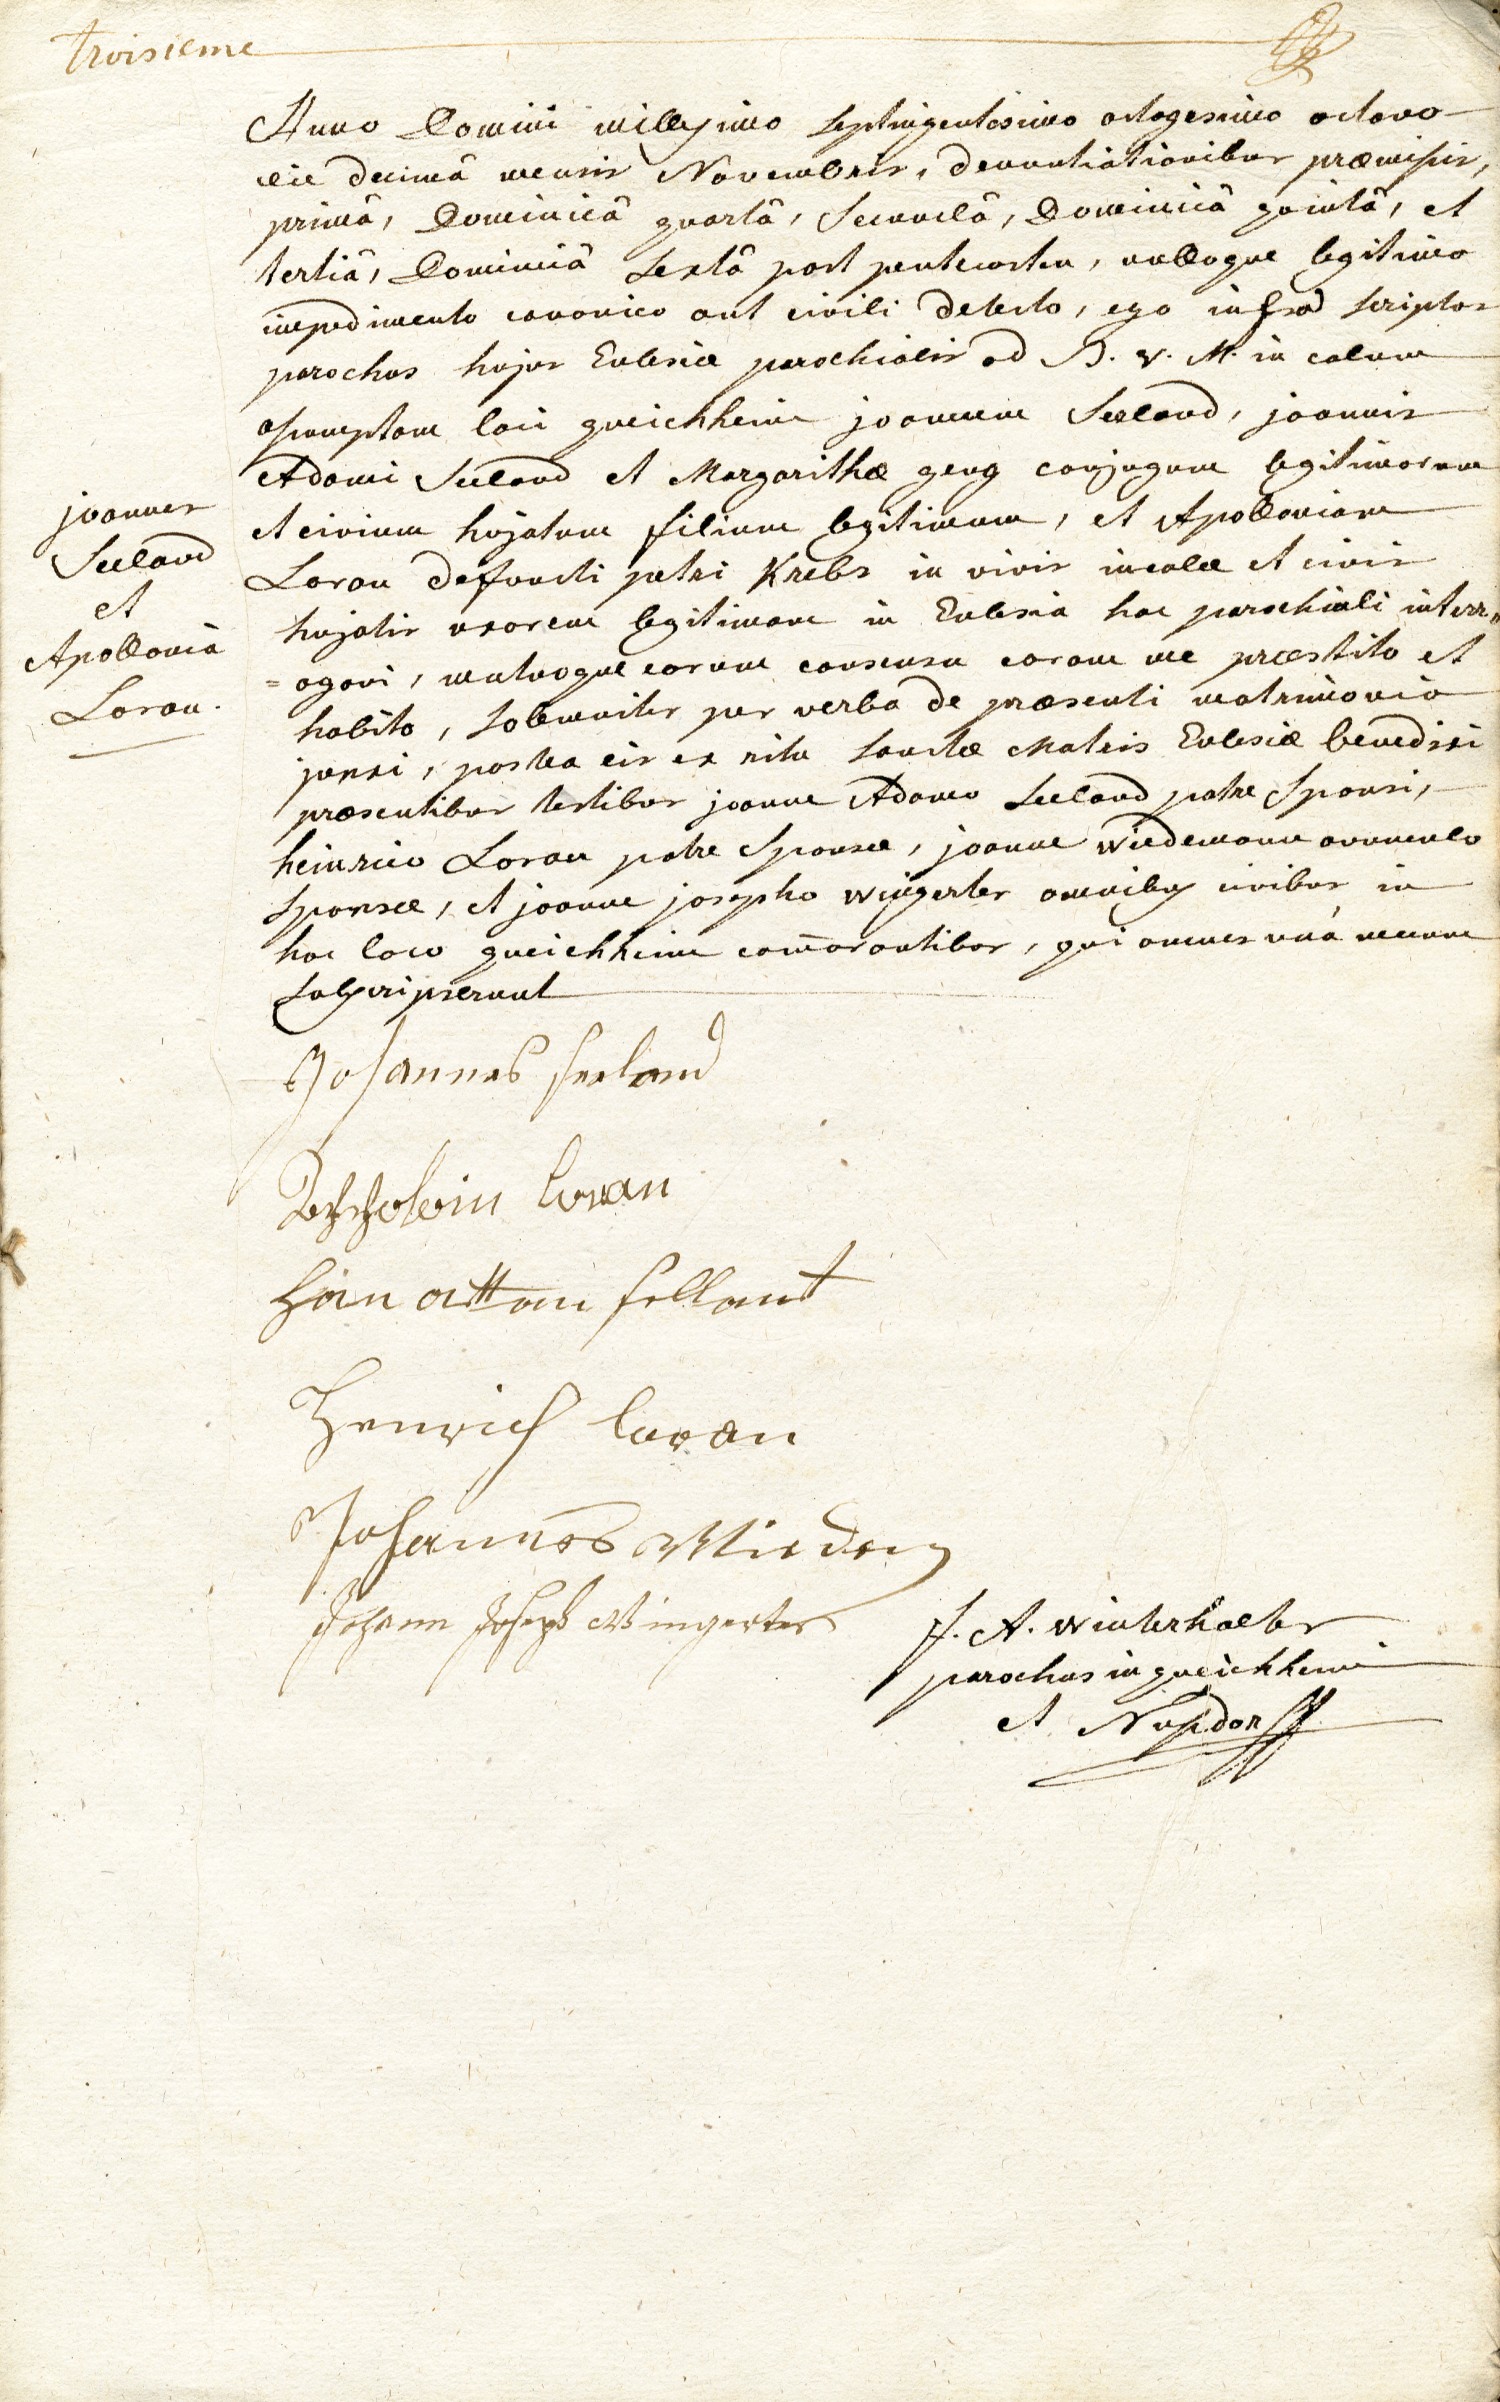 troisieme
Anno Domini millesimo septingentesimo octogesimo octavo
die decimâ mensis Novembris, denuntiationibus præmissis,
primâ, Dominicâ quartâ, Secundâ, Dominicâ quintâ, et
tertiâ, Dominicâ Sextâ post pentecosten, nulloque legitimo
impedimento canonico aut civili detecto, ego infrad scriptus
parochus hujus Eclesiæ parochialis ad B. v. M. in cælum
assumptam loci queichheim joannem Seeland, joannis
Adami Seeland et Margarithæ geng conjugum legitimorum
et civium hujatum filium legitimum, et Apolloniam
Loran defuncti petri Krebs in vivis incolæ et civis
hujatis uxorem legitimam in Eclesia hac parochiali interr=
=ogavi, mutuoque eorum consensu coram me præstito et
habito, solemniter per verba de præsenti matrimonio
junxi, postea eis ex ritu sanctæ Matris Eclesiæ benedixi
præsentibus testibus joanne Adamo Seeland patre Sponsi,
heinrico Loran patre Sponsæ, joanne wiedemann avunculo
sponsæ, et joanne josepho wingerter omnibus civibus in
hoc loco queichheim com̄orantibus, qui omnes unà mecum
subscripserunt
joannes
Seeland
et
Apollonia
Loran.
Johannes Seeland
Loran
Han attam sellant
Henrich Loran
Johannes
Johann Joseph Wingerter
f. A. winterhalter
parochus in queichheim
et Nussdorff